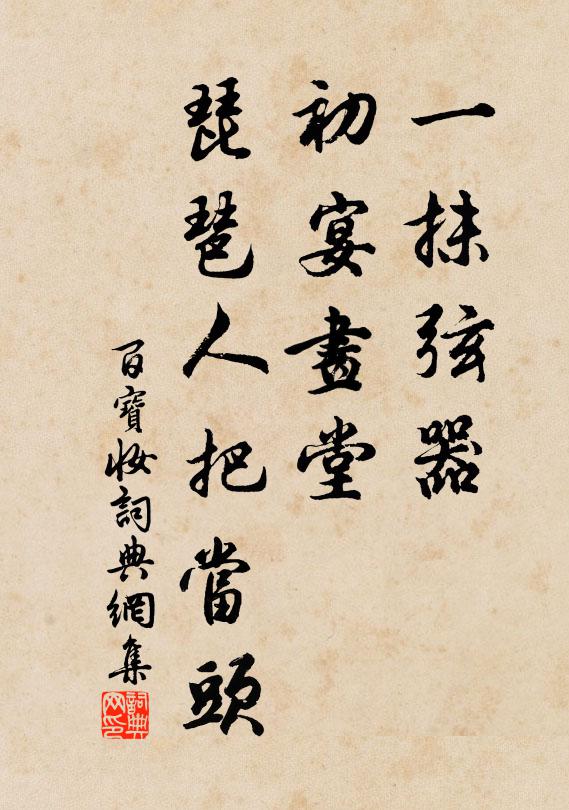 一抹弦器
初宴畫堂
琵琶人把當頭
百寶妝詞典網集
詞典網印